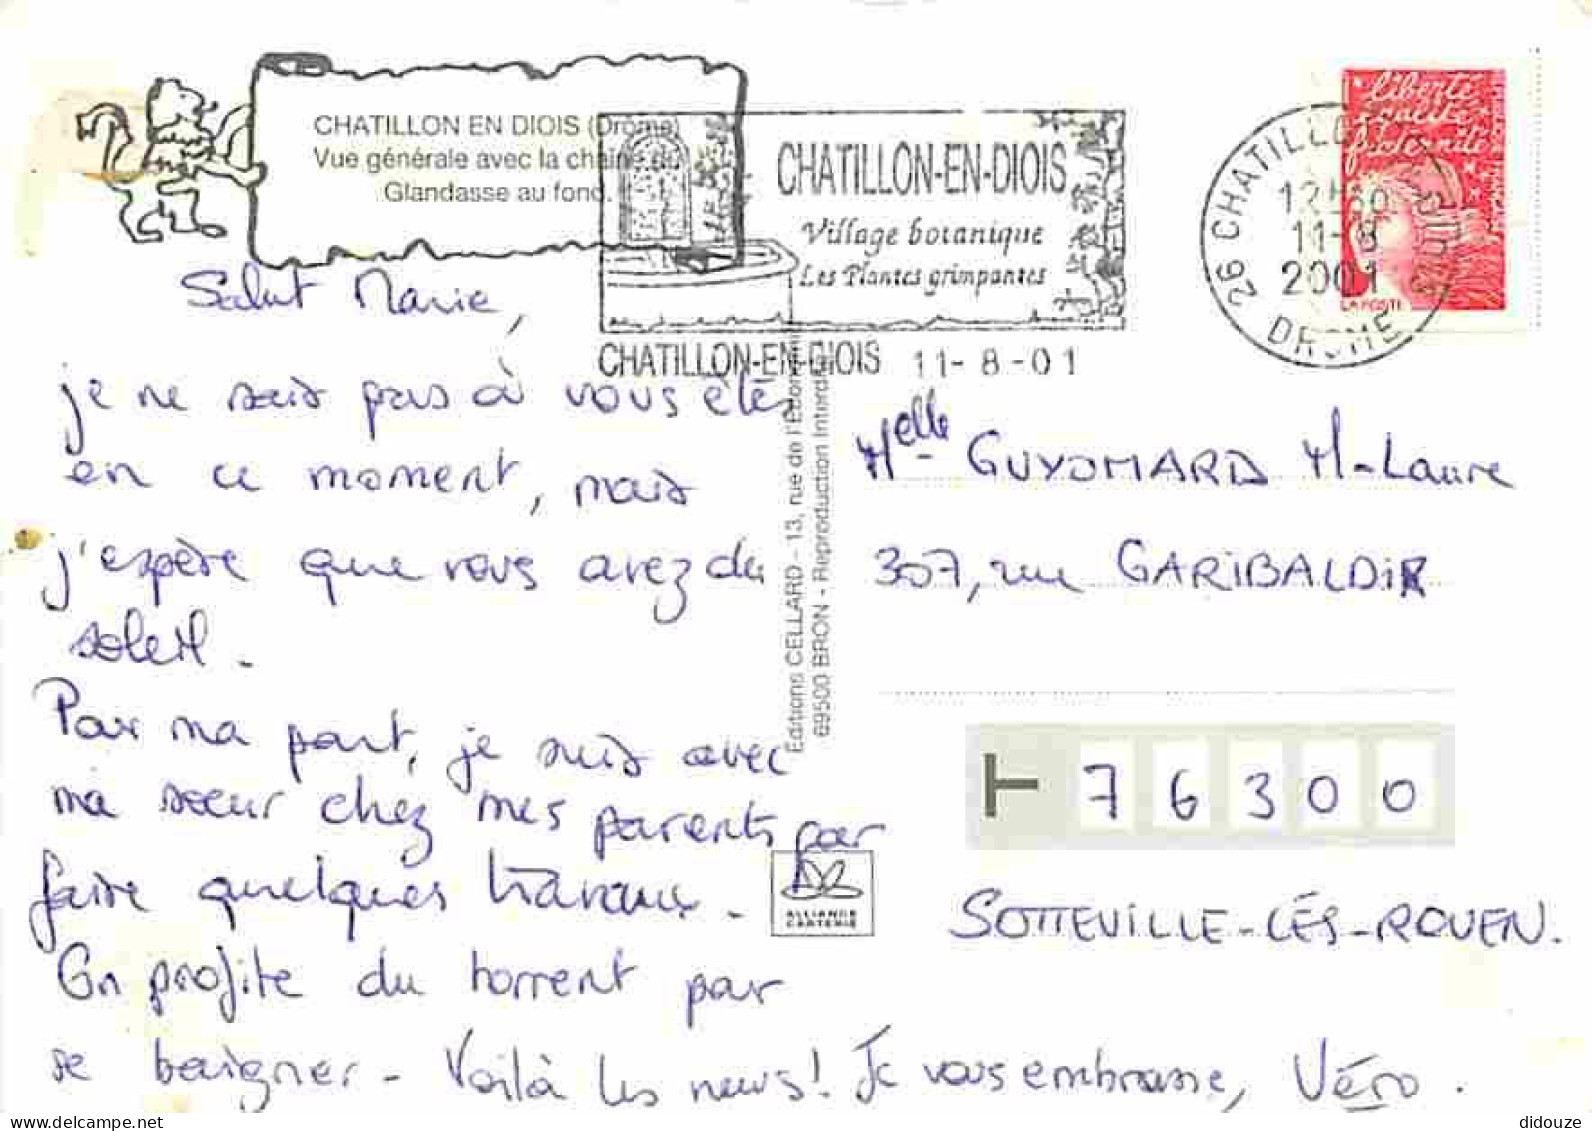 CHATILLON EN DIOIS (Drôme)
Vue générale avec la chaine du
Glandasse au fond.
CHATILLON-EN-DIOIS
Village botanique
Les Plantes grimpantes
CHATILLON-EN-DIOIS 11-8-01
liberté
égalité
fraternité
LA POSTE
26 CHATILLON EN DIOIS
DROME
11-8
2001
Salut Marie,
je ne sais pas où vous êtes
en ce moment, mais
j'espère que vous avez du
soleil.
Pour ma part, je suis avec
ma soeur chez mes parents par
faire quelques travaux.
On profite du torrent par
se baigner - Voilà les news! Je vous embrasse, Véro.
Editions CELLARD - 13, rue de l'Edition
69500 BRON - Reproduction Interdite
Melle GUYOMARD M-Laure
307, rue GARIBALDI
76300
SOTTEVILLE-LÉS-ROUEN.
ALLIANCE
CARTERIE
delcampe.net
didouze